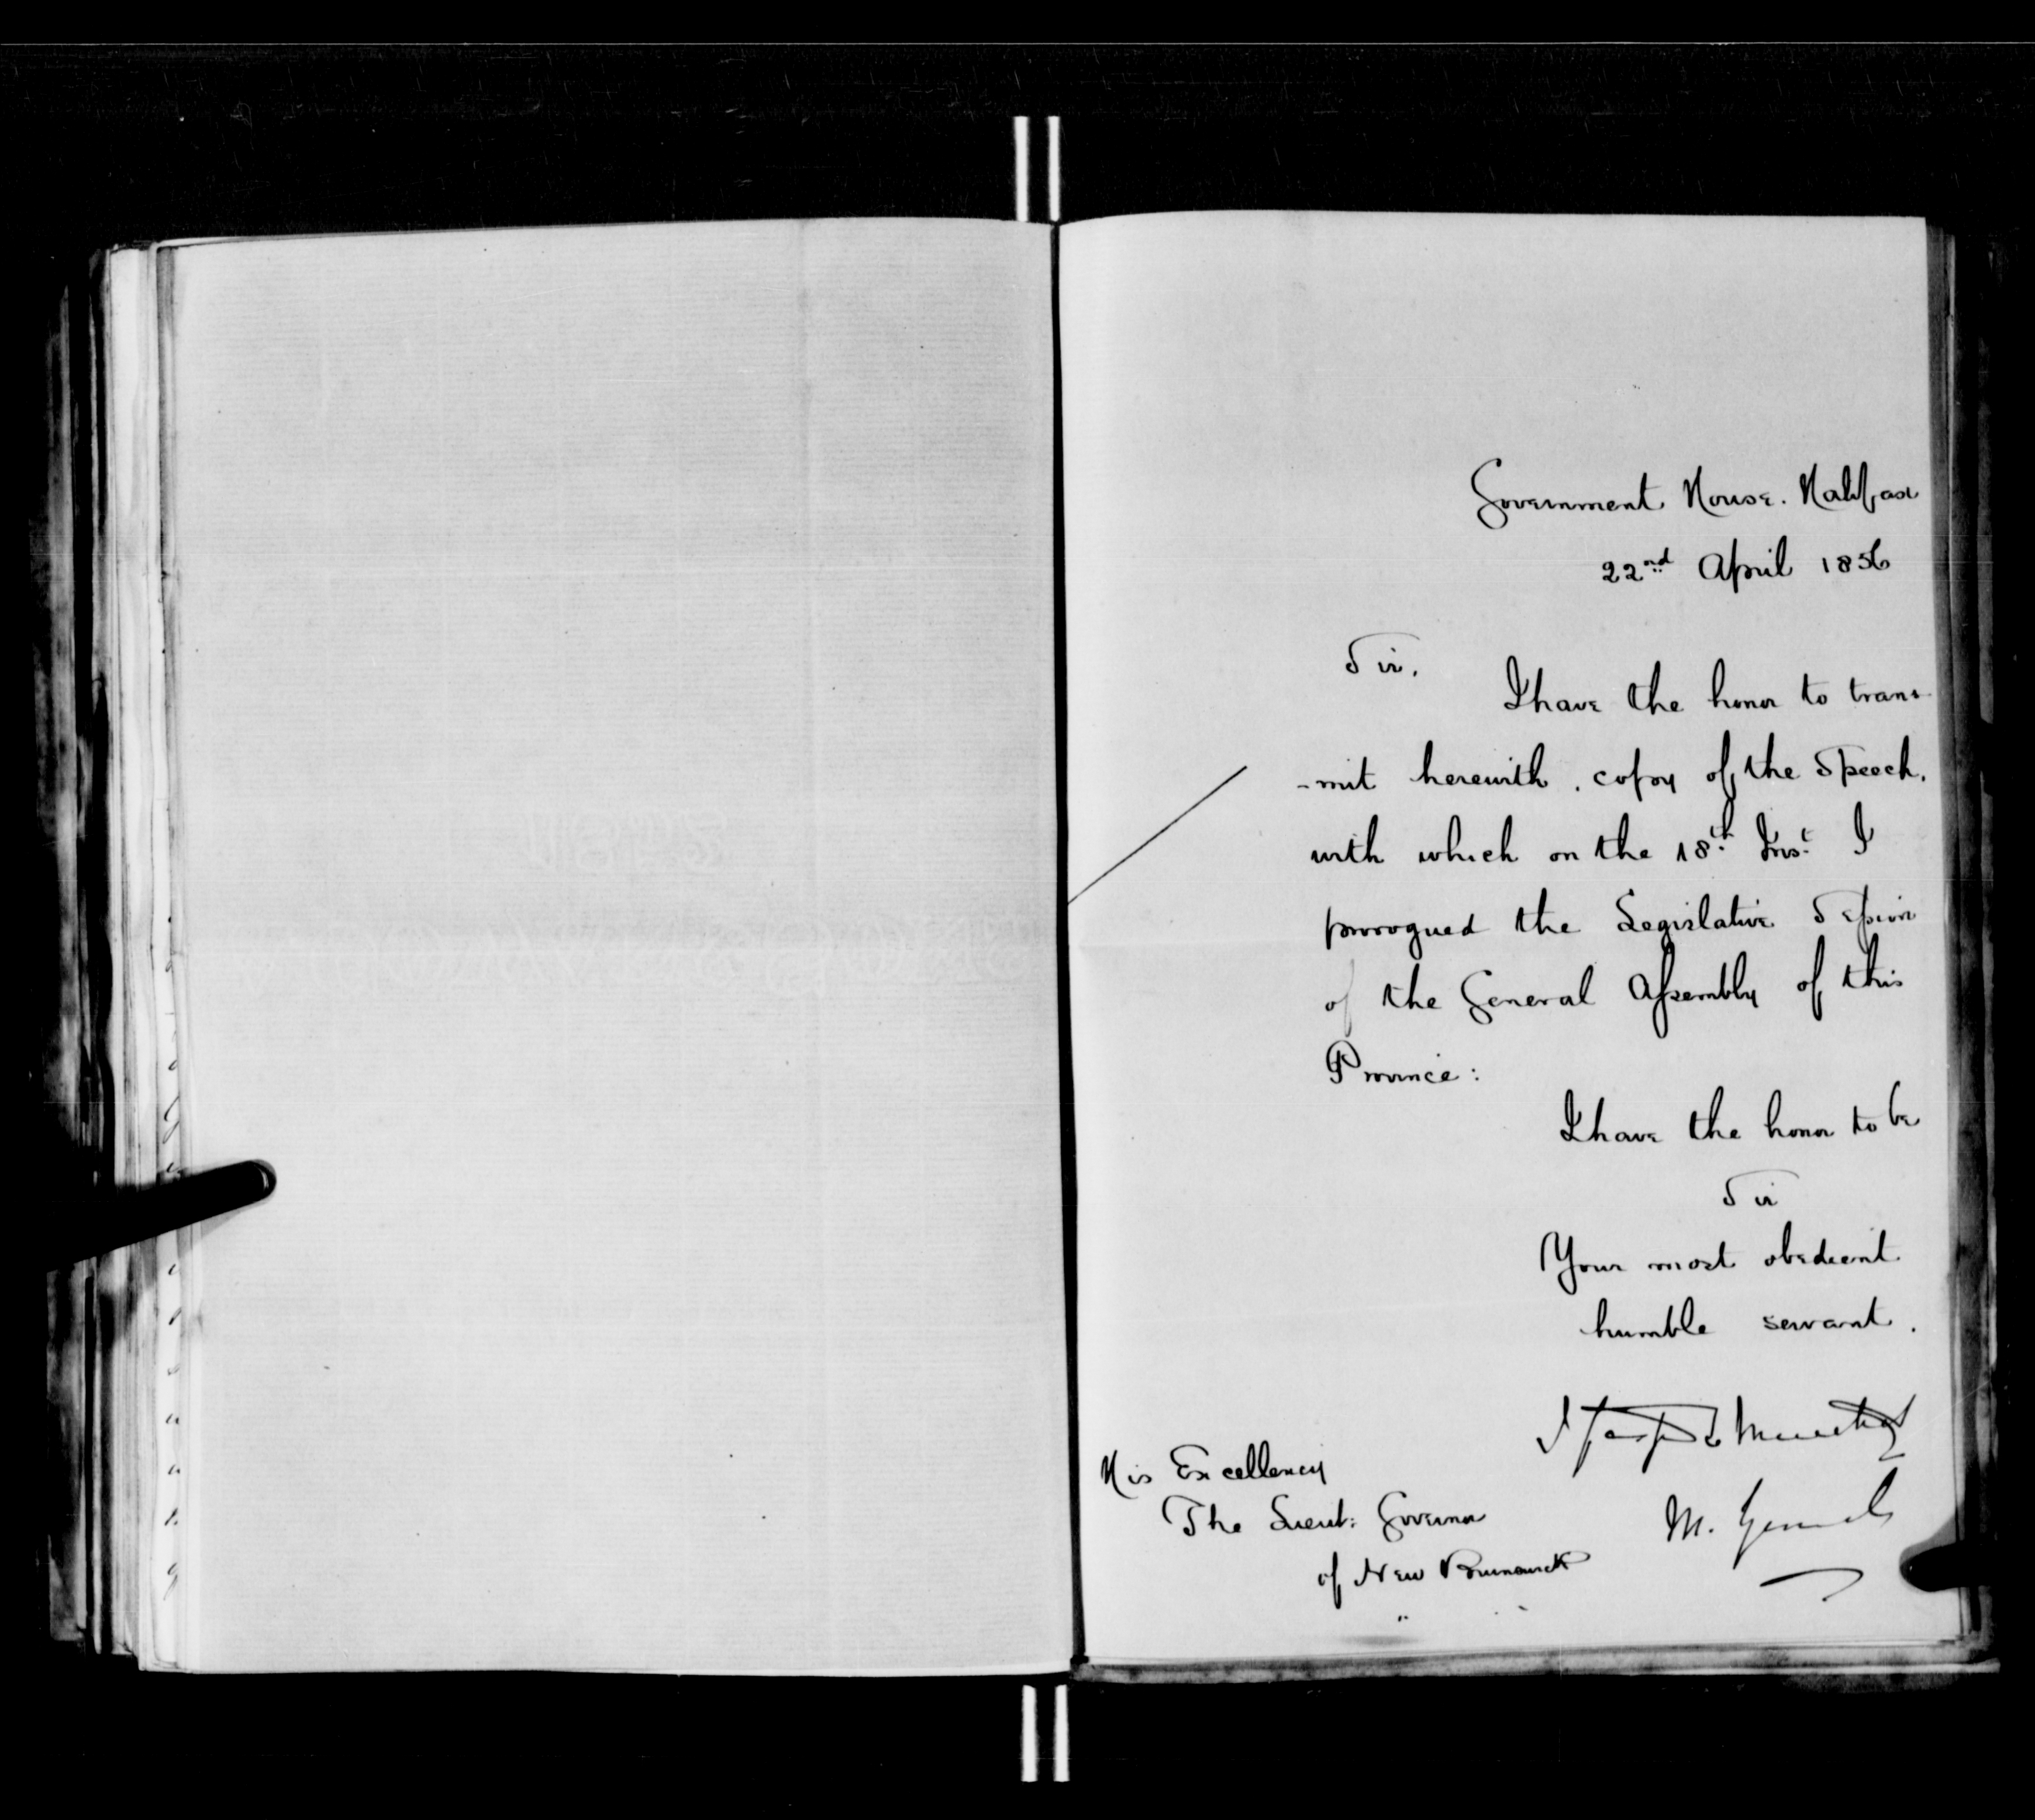 Government House. Halifax
22nd April 1856
Sir.
I have the honor to trans
-mit herewith . copy of the Speech.
with which on the 18th Inst. I
prorogued the Legislative Session
of the General Assembly of this
Province :
I have the honor to be
Sir
Your most obedient
humble servant .
M. General
His Excellency
The Lieut: Governor
of New Brunswick